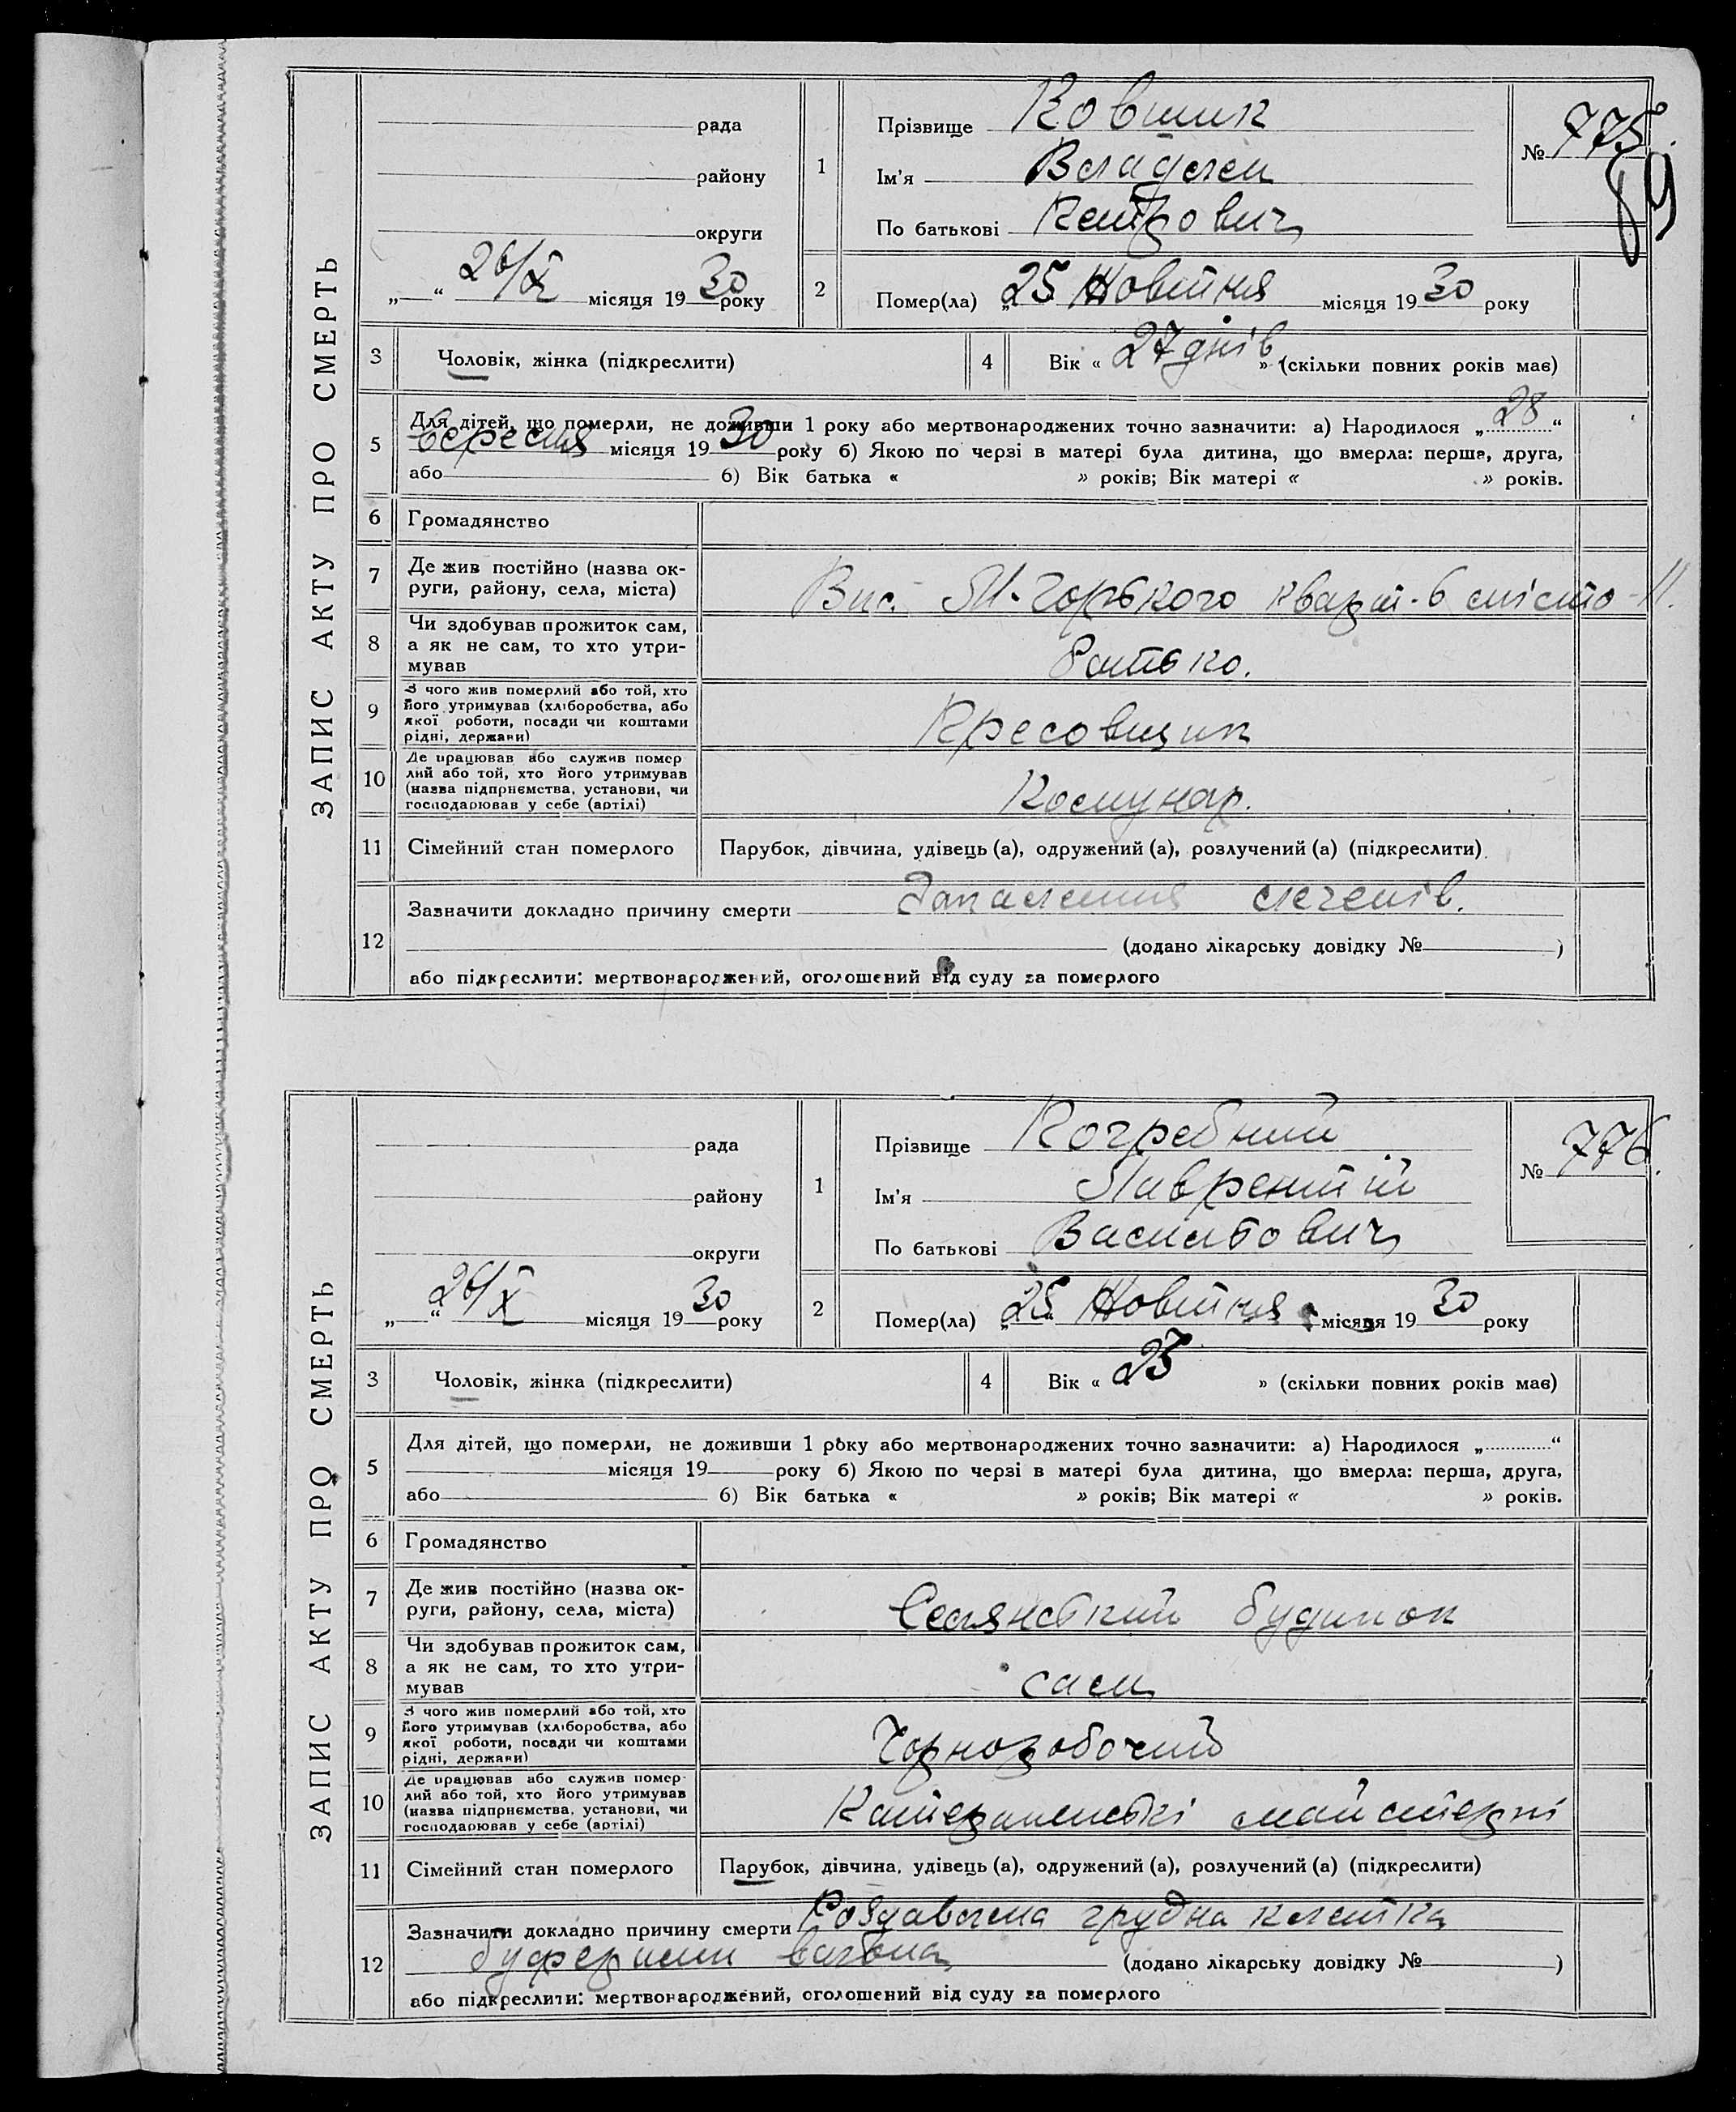 ЗАПИС АКТУ ПРО СМЕРТЬ
рада
району
округи
„ “ 26/X місяця 1930 року
1
Прізвище Ковшик
Ім'я Владлен
По батькові Петрович
№ 775.
89
2
Помер(ла) „25 Жовтня місяця 1930 року
3
Чоловік, жінка (підкреслити)
4
Вік « 27 днів » (скільки повних років має)
5
Для дітей, що померли, не доживши 1 року або мертвонароджених точно зазначити: а) Народилося „28“
вересня місяця 1930 року б) Якою по черзі в матері була дитина, що вмерла: перша, друга,
або б) Вік батька « » років; Вік матері « » років.
6
Громадянство
7
Де жив постійно (назва ок-
руги, району, села, міста)
Вис. М-Горького кварт-6 місто-11.
8
Чи здобував прожиток сам,
а як не сам, то хто утри-
мував
Батько.
9
З чого жив померлий або той, хто
його утримував (хліборобства, або
якої роботи, посади чи коштами
рідні, держави)
Пресовщик
10
Де працював або служив помер
лий або той, хто його утримував
(назва підприємства, установи, чи
господарював у себе (артілі)
Комунар.
11
Сімейний стан померлого
Парубок, дівчина, удівець (а), одружений (а), розлучений (а) (підкреслити).
12
Зазначити докладно причину смерти Запалення легенів.
(додано лікарську довідку № )
або підкреслити: мертвонароджений, оголошений від суду за померлого
ЗАПИС АКТУ ПРО СМЕРТЬ
рада
району
округи
„ “ 26/X місяця 1930 року
1
Прізвище Погребний
Ім'я Лаврентій
По батькові Васильович
№ 776.
2
Помер(ла) „25“ Жовтня місяця 1930 року
3
Чоловік, жінка (підкреслити)
4
Вік « 25 » (скільки повних років має)
5
Для дітей, що померли, не доживши 1 року або мертвонароджених точно зазначити: а) Народилося „ “
місяця 19 року б) Якою по черзі в матері була дитина, що вмерла: перша, друга,
або б) Вік батька « » років; Вік матері « » років.
6
Громадянство
7
Де жив постійно (назва ок-
руги, району, села, міста)
Селянський будинок
8
Чи здобував прожиток сам,
а як не сам, то хто утри-
мував
сам
9
З чого жив померлий або той, хто
його утримував (хліборобства, або
якої роботи, посади чи коштами
рідні, держави)
Чорноробочий
10
Де працював або служив помер-
лий або той, хто його утримував
(назва підприємства, установи, чи
господарював у себе (артілі)
майстерні
11
Сімейний стан померлого
Парубок, дівчина, удівець (а), одружений (а), розлучений (а) (підкреслити)
12
Зазначити докладно причину смерти Роздавлена грудна клетка
буферами вагона
(додано лікарську довідку № )
або підкреслити: мертвонароджений, оголошений від суду за померлого